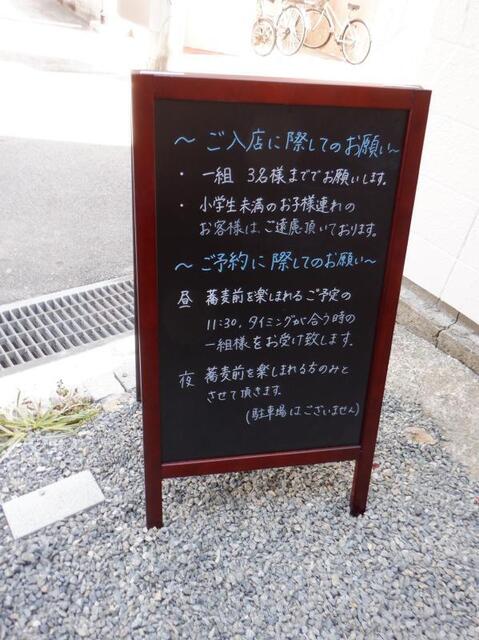 ～ご入店に際してのお願い～
・一組 3名様まででお願いします。
・小学生未満のお子様連れの
お客様は、ご遠慮頂いております。
～ご予約に際してのお願い～
昼 蕎麦前を楽しまれるご予定の
11:30.タイミングが合う時の
一組様をお受け致します。
夜 蕎麦前を楽しまれる方のみと
させて頂きます。
(駐車場はございません)